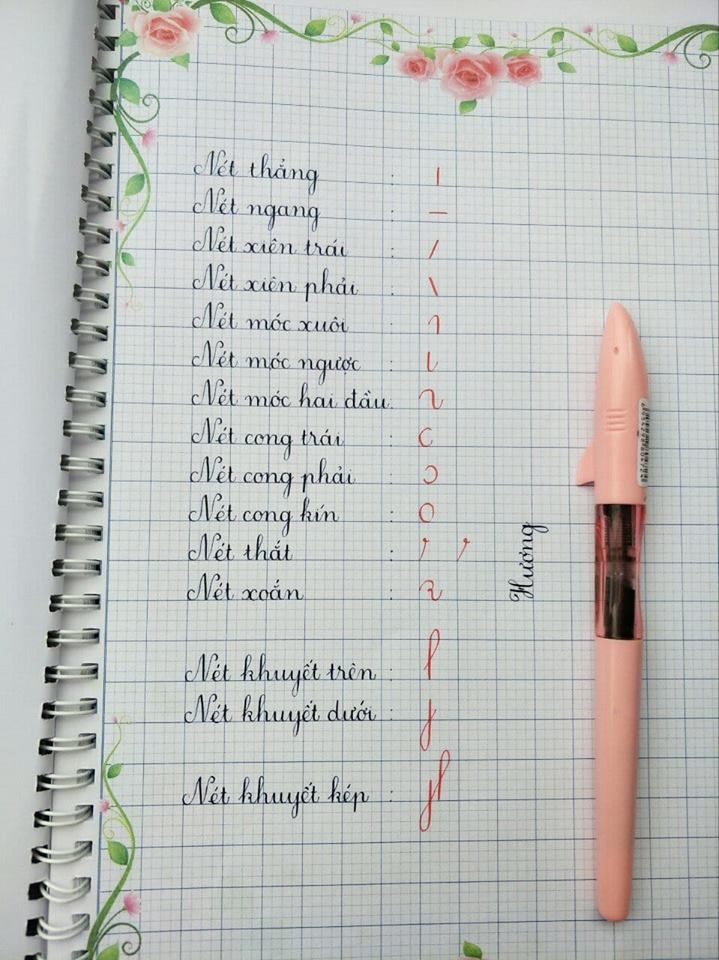 Nét thẳng :
Nét ngang :
Nét xiên trái :
Nét xiên phải :
Nét móc xuôi :
Nét móc ngược :
Nét móc hai đầu :
Nét cong trái :
Nét cong phải :
Nét cong kín :
Nét thắt :
Nét xoắn :
Nét khuyết trên :
Nét khuyết dưới :
Nét khuyết kép :
Hương